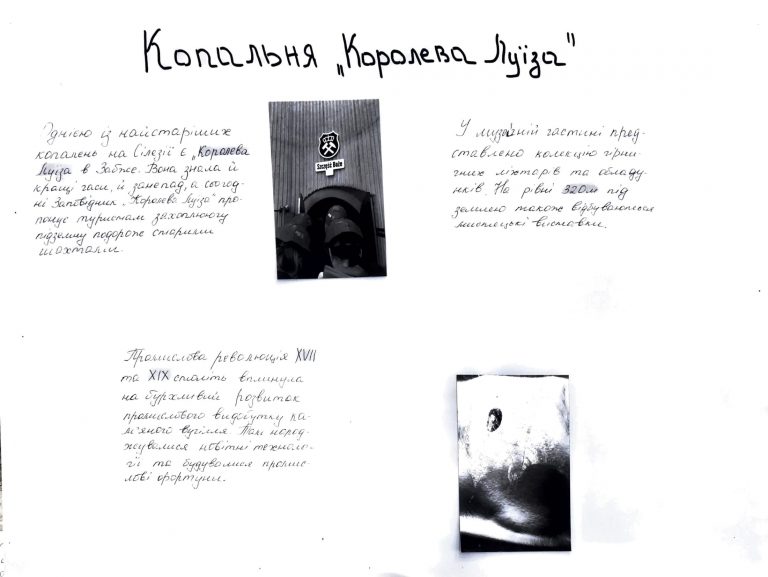 Копальня „Королева Луїза"
Однією із найстаріших
копалень на Сілезії є „Королева
Луїза" в Забже. Вона знала й
кращі часи, й занепад, а сьогод-
ні Заповідник „Королева Луїза" про-
понує туристам захоплюючу
підземну подорож старими
шахтами.
Szczęść Boże
У музейній частині пред-
ставлено колекцію гірни-
чих ліхтарів та обладу-
нків. На рівні 320м під
землею також відбуваються
мистецькі виставки.
Промислова революція XVII
та XIX століть вплинула
на бурхливий розвиток
промислового видобутку ка-
м'яного вугілля. Там народ-
жувалися новітні техноло-
гії та будувалися промис-
лові фортуни.